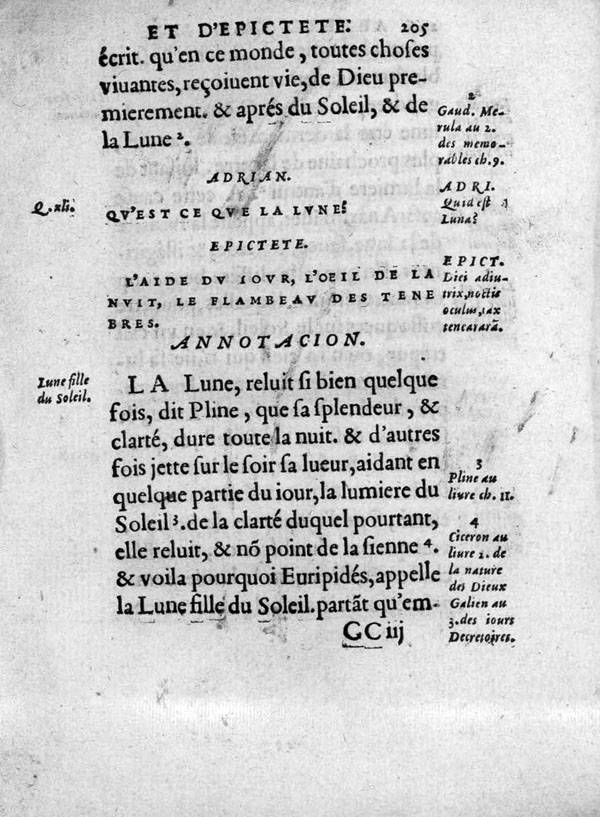 ET D'EPICTETE. 205
écrit. qu'en ce monde, toutes choſes
viuantes, reçoiuent vie, de Dieu pre-
mierement. & aprés du Soleil, & de
la Lune ².
2
Gaud. Me-
rula au 2.
des memo-
rables ch. 9.
ADRIAN.
ADRI.
Quid eſt
Luna?
Q. xli.
QV'EST CE QVE LA LVNE?
EPICTETE.
EPICT.
Diei adiu-
trix, noctis
oculus, fax
L'AIDE DV IOVR, L'OEIL DE LA
NVIT, LE FLAMBEAV DES TENE
BRES.
ANNOTACION.
Lune fille
du Soleil.
LA Lune, reluit ſi bien quelque
fois, dit Pline, que ſa ſplendeur, &
clarté, dure toute la nuit. & d'autres
fois jette ſur le ſoir ſa lueur, aidant en
quelque partie du iour, la lumiere du
Soleil ³. de la clarté duquel pourtant,
elle reluit, & nõ point de la ſienne ⁴.
& voila pourquoi Euripidés, appelle
la Lune fille du Soleil. partãt qu'em-
3
Pline au
liure ch. II.
4
Ciceron au
liure 2. de
la nature
des Dieux
Galien au
3. des iours
Decretoires.
GC iij